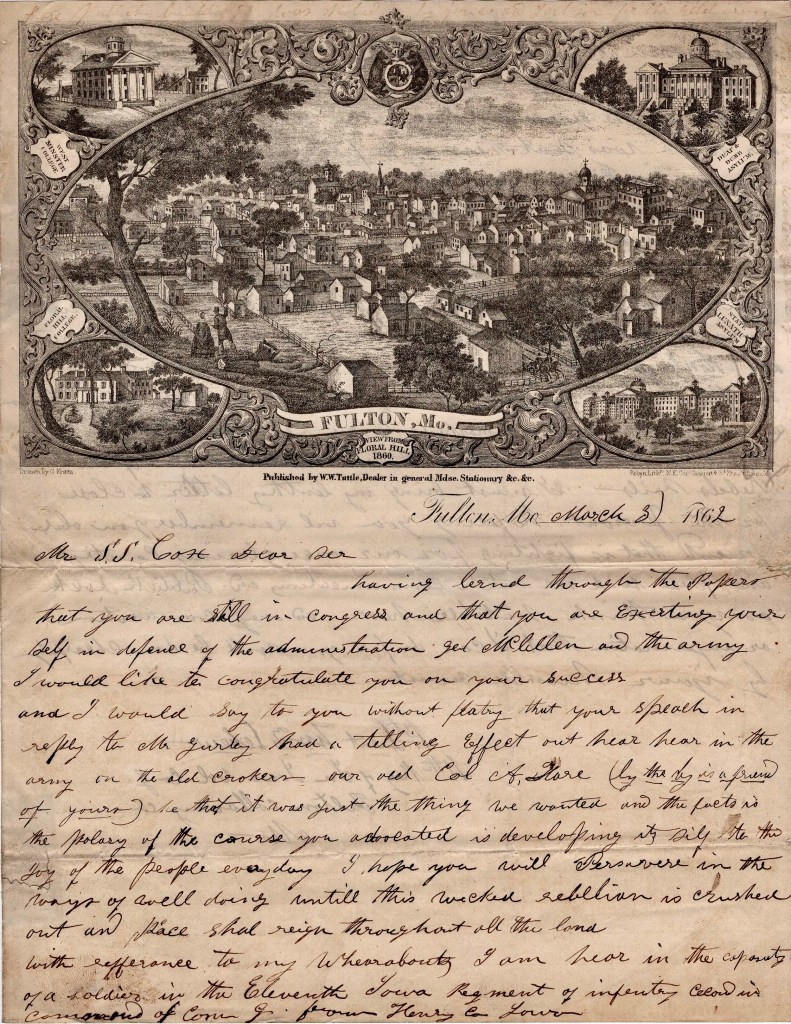 WEST
MINSTER
COLLEGE
DEAF &
DUMB
ASYLUM.
FLORAL
HILL
COLLEGE.
STATE
LUNATIC
ASYLUM
FULTON, Mo.
VIEW FROM
FLORAL HILL
1860.
Drawn by C. Kratz
Published by W.W. Tuttle, Dealer in general Mdse. Stationary &c. &c.
Fulton. Mo March 3) 1862
Mr S. S. Cox Dear Ser
having lernd through the Papers
that you are still in congress and that you are Exerting your
self in defence of the administration gel Mclellen and the army.
I would like to congratulate you on your success
and I would say to you without flatry that your speach in
reply to Mr Gurley had a telling Effect out hear hear in the
army on the old crokers our old Col A, Hare (by the by is a friend
of yours) se that it was just the thing we wanted and the facts is
the polacy of the course you advocated is developing its self to the
Joy of the people everyday I hope you will Persevere in the
ways of well doing untill this wicked rebellion is crushed
out and Peace shal reign throughout all the land
with refferance to my Whearabouts I am hear in the capasity
of a soldier in the Eleventh Iowa Regment of infentry and in
command of Com G. from Henry Co Iowa